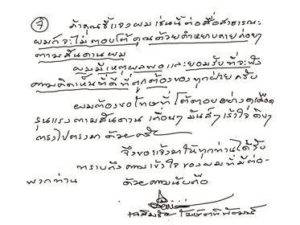 จ ถ้าคุณชี้แจงผมเช่นนี้ต่อสื่อสาธารณะ
ผมก็จะไม่ตอบโต้คุณด้วยคำหยาบคายต่างๆ
ตามสันดานผม
ผมมีเหตุผลพอและยอมรับที่จะฟัง
ความคิดเห็นที่ดีที่ถูกต้องของทุกฝ่ายครับ
ผมต้องขอโทษที่โต้ตอบอย่างดุเดือด
รุนแรงตามสันดาน เถื่อนๆ มันส์ๆ เร้าใจ ดิบๆ
ตรงไปตรงมา ด้วยครับ
จึงขอแจ้งมาให้ทุกท่านได้รับ
ทราบถึงความเข้าใจของผมที่มีต่อ
พวกท่าน ด้วยความนับถือ
เฉลิมชัย โฆษิตพิพัฒน์